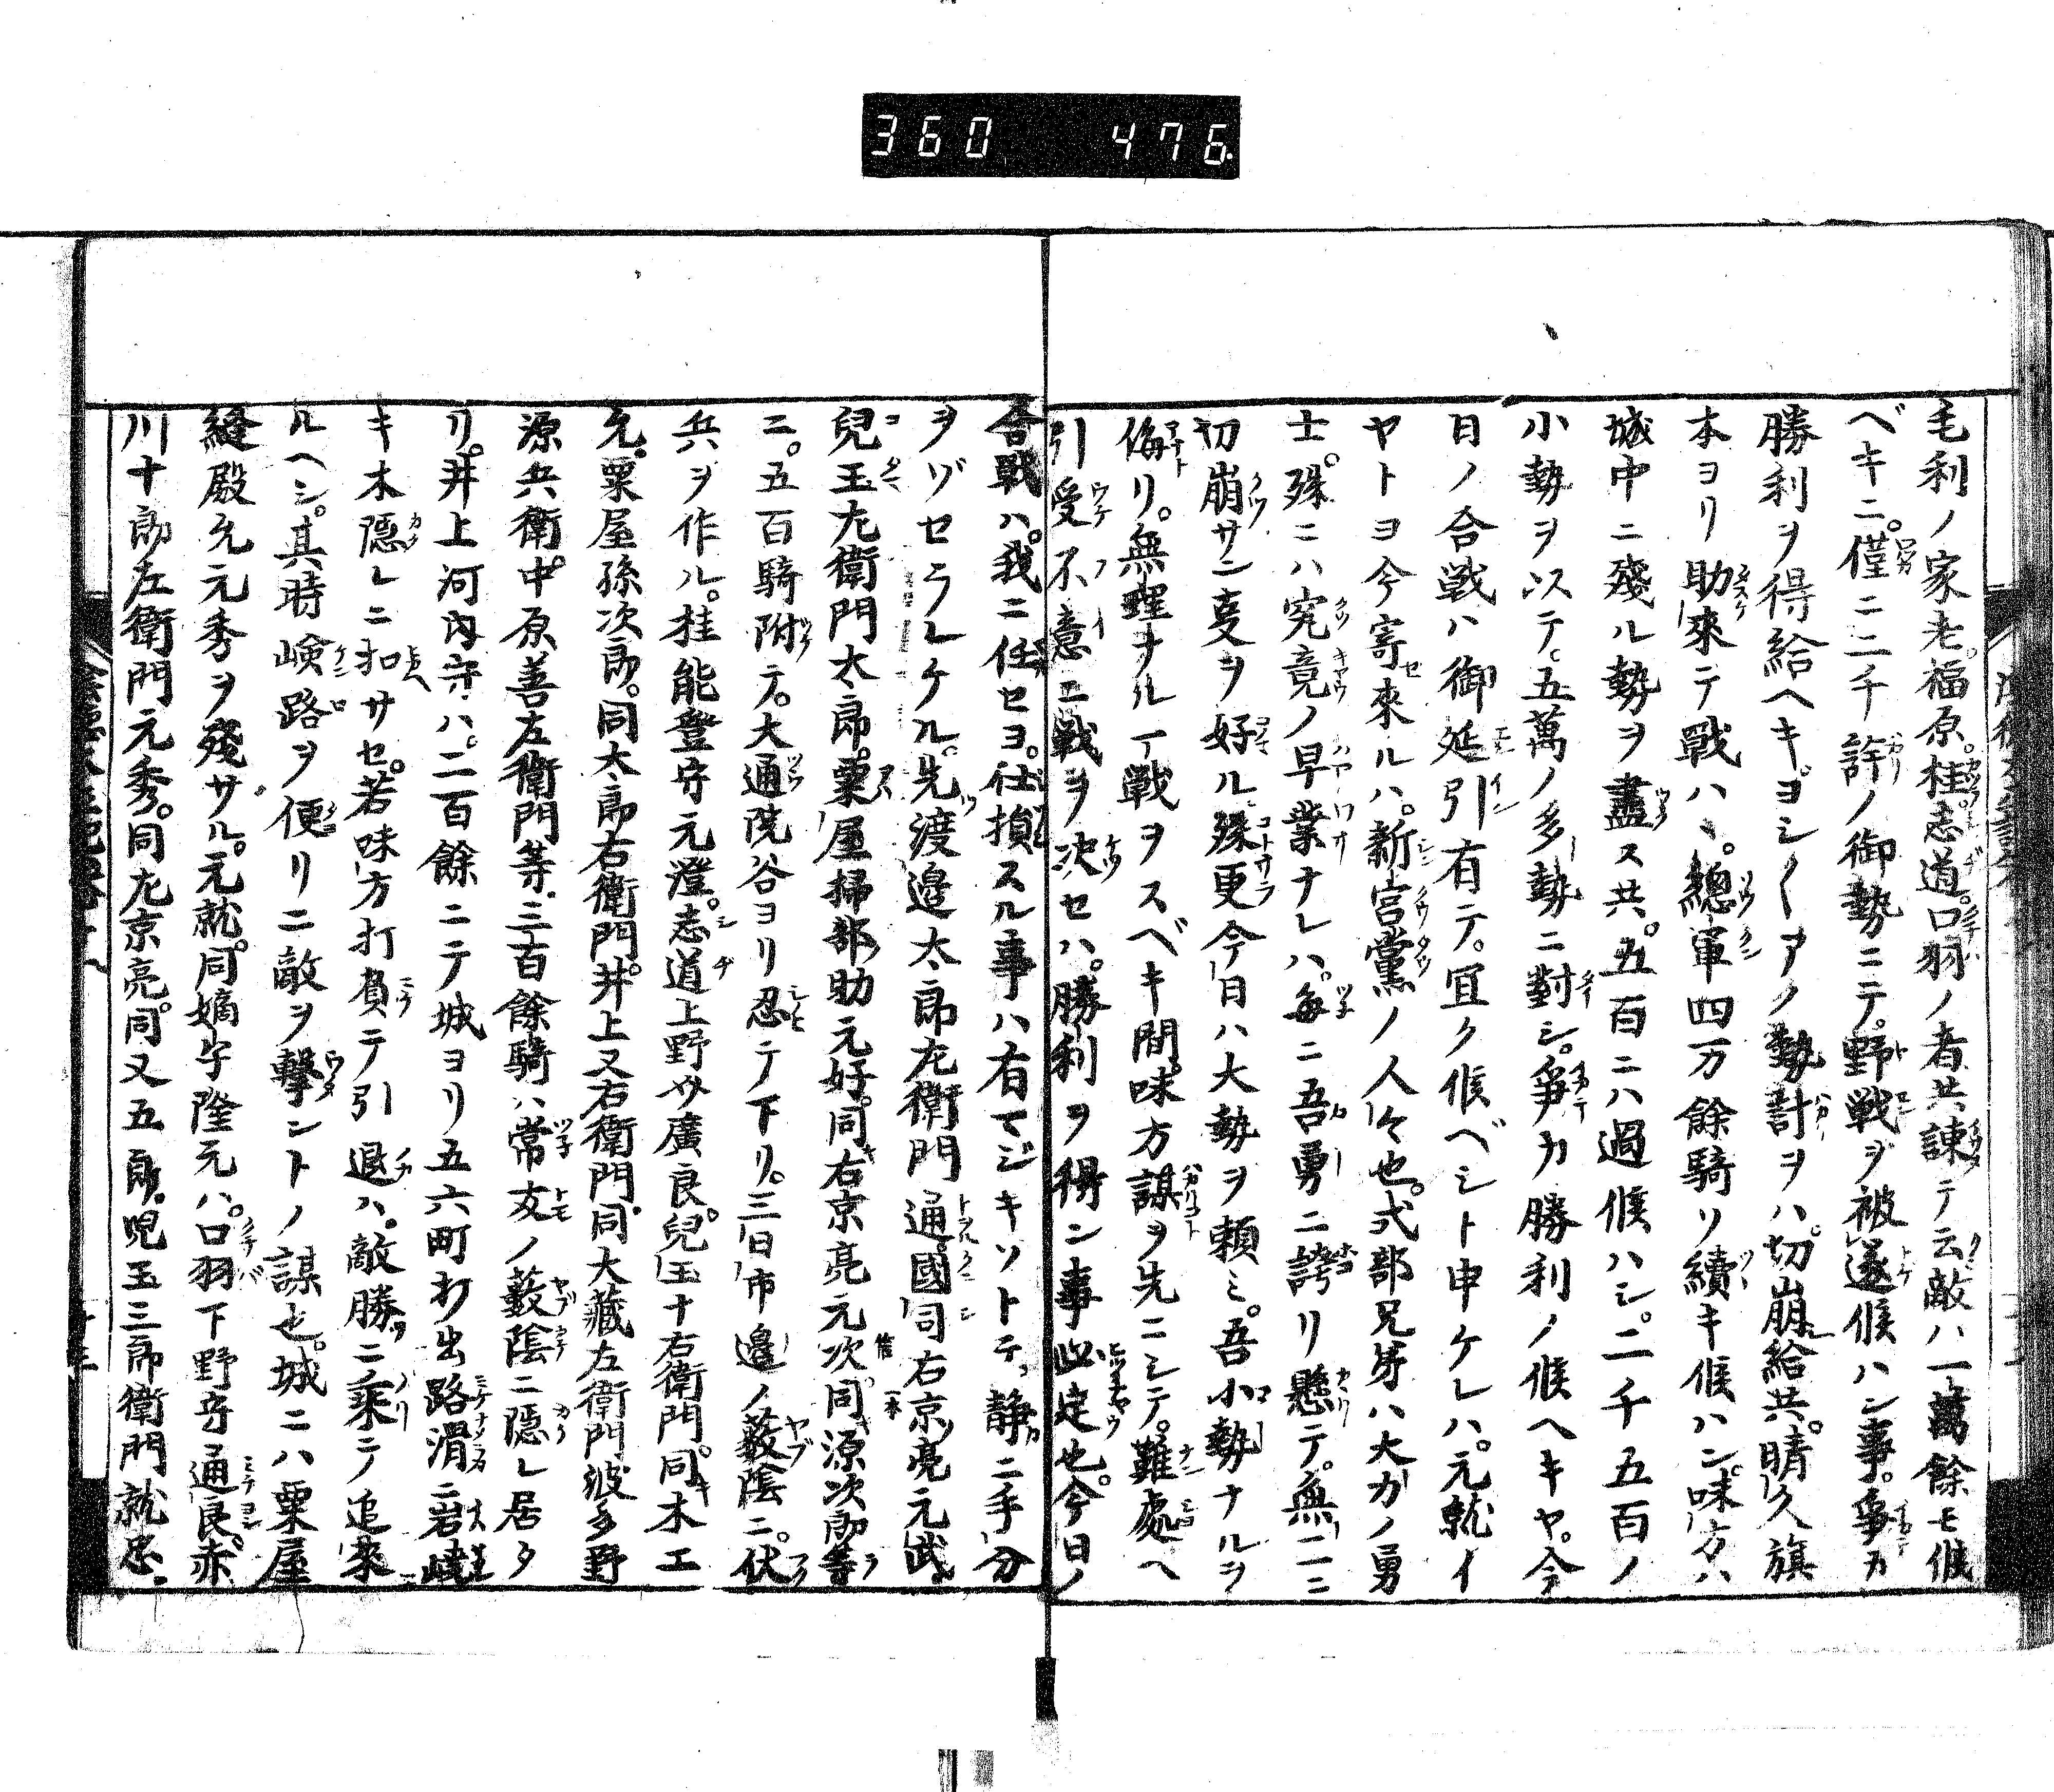 360 476
毛利ノ家老。福原。桂。志道。口羽ノ者共諫テ云敵ハ一萬餘モ候
ベキニ。僅ニ二千許ノ御勢ニテ。野戦ヲ被遂候ハン事。爭カ
勝利ヲ得給ヘキ。ヨシ〱アノ勢計ヲハ。切崩給共。晴久旗
本ヨリ助來テ戰ハヽ。總軍四万餘騎リ續キ候ハン。味方ハ
城中ニ殘ル勢ヲ盡ス共。五百ニハ過候ハシ。二千五百ノ
小勢ヲ以テ。五萬ノ多勢ニ對シ。爭カ勝利ノ候ヘキヤ。今
日ノ合戦ハ御延引有テ。宜ク候ベシト申ケレハ。元就イ
ヤトヨ今寄來ルハ。新宮黨ノ人々也。式部兄弟ハ大力ノ勇
士。殊ニハ究竟ノ早業ナレハ。毎ニ吾勇ニ誇リ懸テ。無二三
切崩サン㕝ヲ好ル。殊更今日ハ大勢ヲ頼ミ。吾小勢ナルヲ
侮リ。無理ナル一戦ヲスベキ間。味方謀ヲ先ニシテ。難處ヘ
引受不意ニ戰ヲ决セハ。勝利ヲ得ン事必定也。今日ノ
合戰ハ。我ニ任セヨ。仕損スル事ハ有マジキソトテ。静ニ手分
ヲゾセラレケル。先渡邉太郎左衛門通。國司右京亮元武
兒玉左衛門太郎。粟屋掃部助元好。同右京亮元次。同源次郎等
ニ。五百騎附テ。大通院谷ヨリ忍テ下リ。三日市邉ノ薮陰ニ。伏
兵ヲ作ル。桂能登守元澄。志道上野介廣良。兒玉十右衛門。同木工
允。粟屋孫次郎。同太郎右衛門。井上又右衛門。同大藏左衛門波多野
源兵衛。中原善左衛門等。三百餘騎ハ常友ノ薮陰ニ隠レ居タ
リ。井上河内守ハ。二百餘ニテ城ヨリ五六町打出路滑ニ岩
キ木隠レニ扣サセ。若味方打負テ引退ハ。敵勝ニ乘テ追來
ルヘシ。其時嶮路ヲ便リニ敵ヲ撃ントノ謀也。城ニハ粟屋
縫殿允元秀ヲ殘サル。元就。同嫡子隆元ハ。口羽下野守通良。赤
川十郎左衛門元秀。同左京亮。同又五郎。児玉三郎衛門就忠。